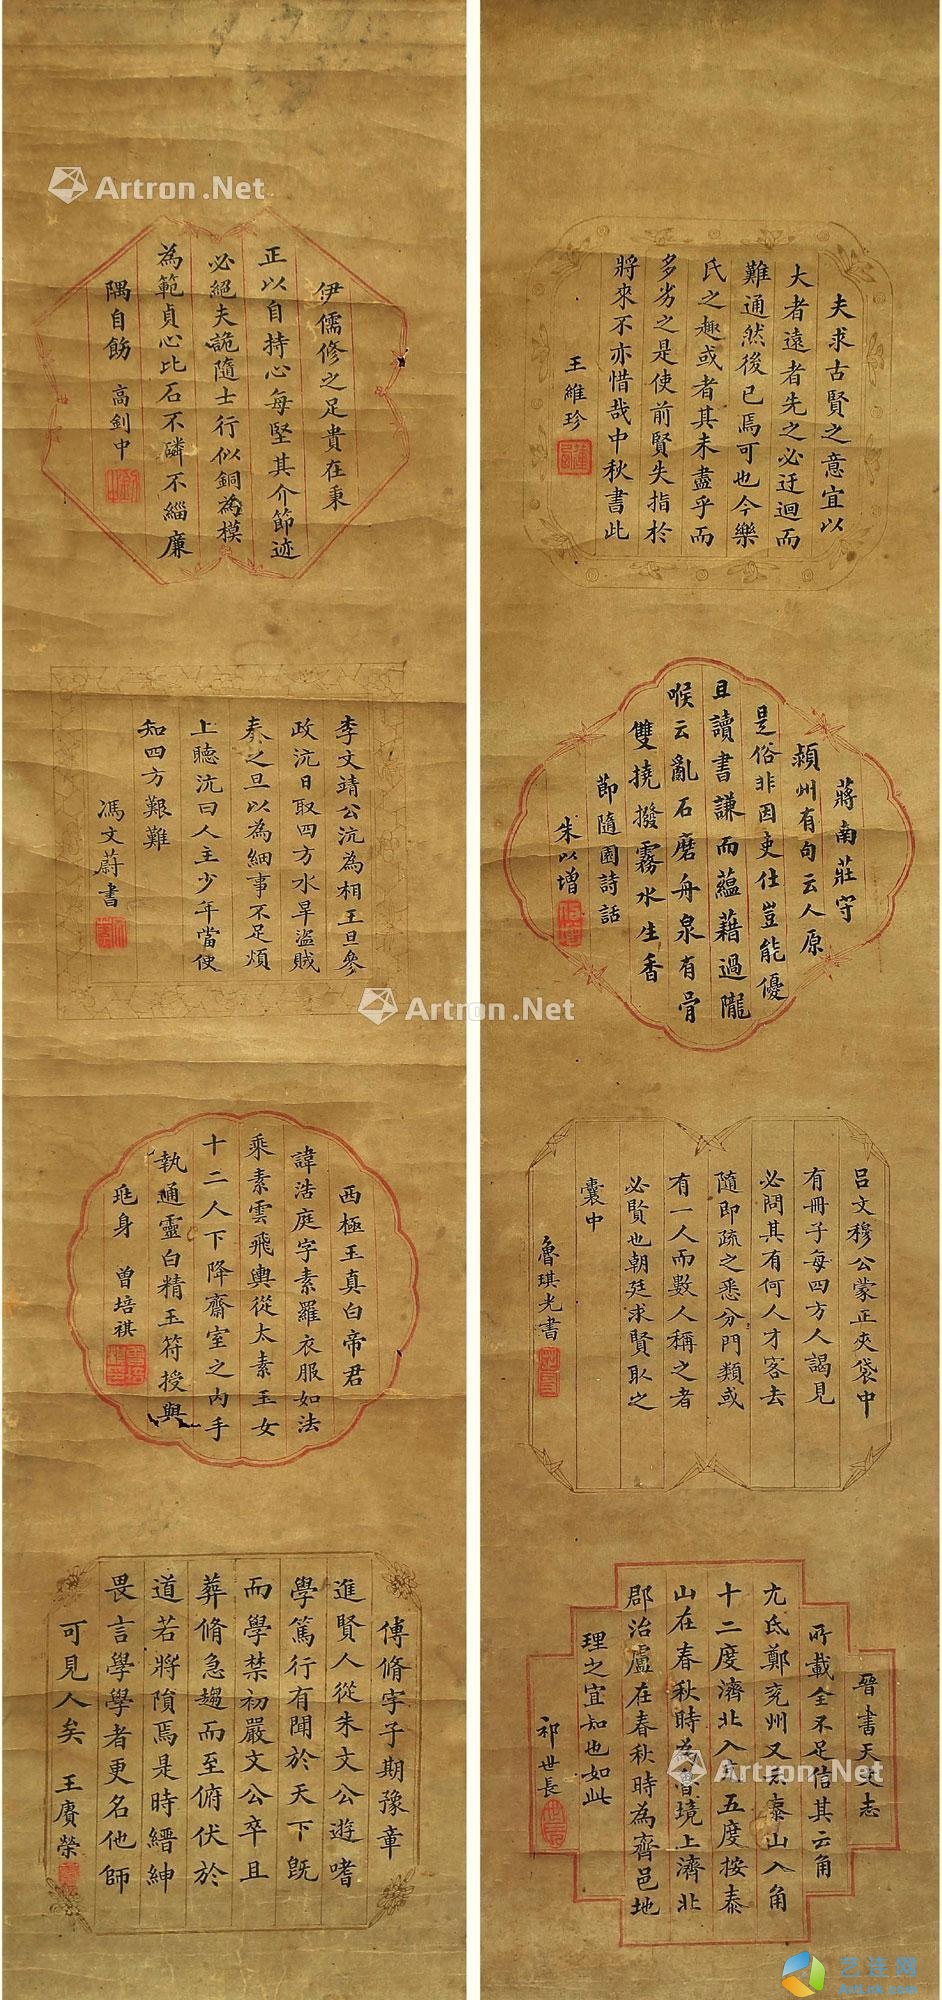 夫求古賢之意宜以
大者遠者先之必迂迴而
難通然後已焉可也今樂
氏之趣或者其未盡乎而
多劣之是使前賢失指於
將來不亦惜哉中秋書此
王維珍
蔣南莊守
潁州有句云人原
是俗非因吏仕豈能優
且讀書謙而蘊藉過隴
喉云亂石磨舟泉有骨
雙撓撥霧水生香
節隨園詩話
朱以增
呂文穆公蒙正夾袋中
有冊子每四方人謁見
必問其有何人才客去
隨即疏之悉分門類或
有一人而數人稱之者
必賢也朝廷求賢取之
囊中
魯琪光書
晉書天文志
所載全不足信其云角
亢氐鄭兗州又云泰山入角
十二度濟北入亢五度按泰
山在春秋時為魯境上濟北
郡治盧在春秋時為齊邑地
理之宜知也如此
祁世長
伊儒修之足貴在秉
正以自持心每堅其介節迹
必絕夫詭隨士行似銅為模
為範貞心比石不磷不緇廉
隅自飭
高釗中
李文靖公沆為相王旦參
政沆日取四方水旱盜賊
奏之旦以為細事不足煩
上聽沆曰人主少年當使
知四方艱難
馮文蔚書
西極玉真白帝君
諱浩庭字素羅衣服如法
乘素雲飛輿從太素玉女
十二人下降齋室之內手
執通靈白精玉符授與
兆身
曾培祺
傅脩字子期豫章
進賢人從朱文公遊嗜
學篤行有聞於天下既
而學禁初嚴文公卒且
葬脩急趨而至俯伏於
道若將隕焉是時縉紳
畏言學學者更名他師
可見人矣
王賡榮
Artron.Net
Artron.Net
Artron.Net
Artron.Net
艺连网